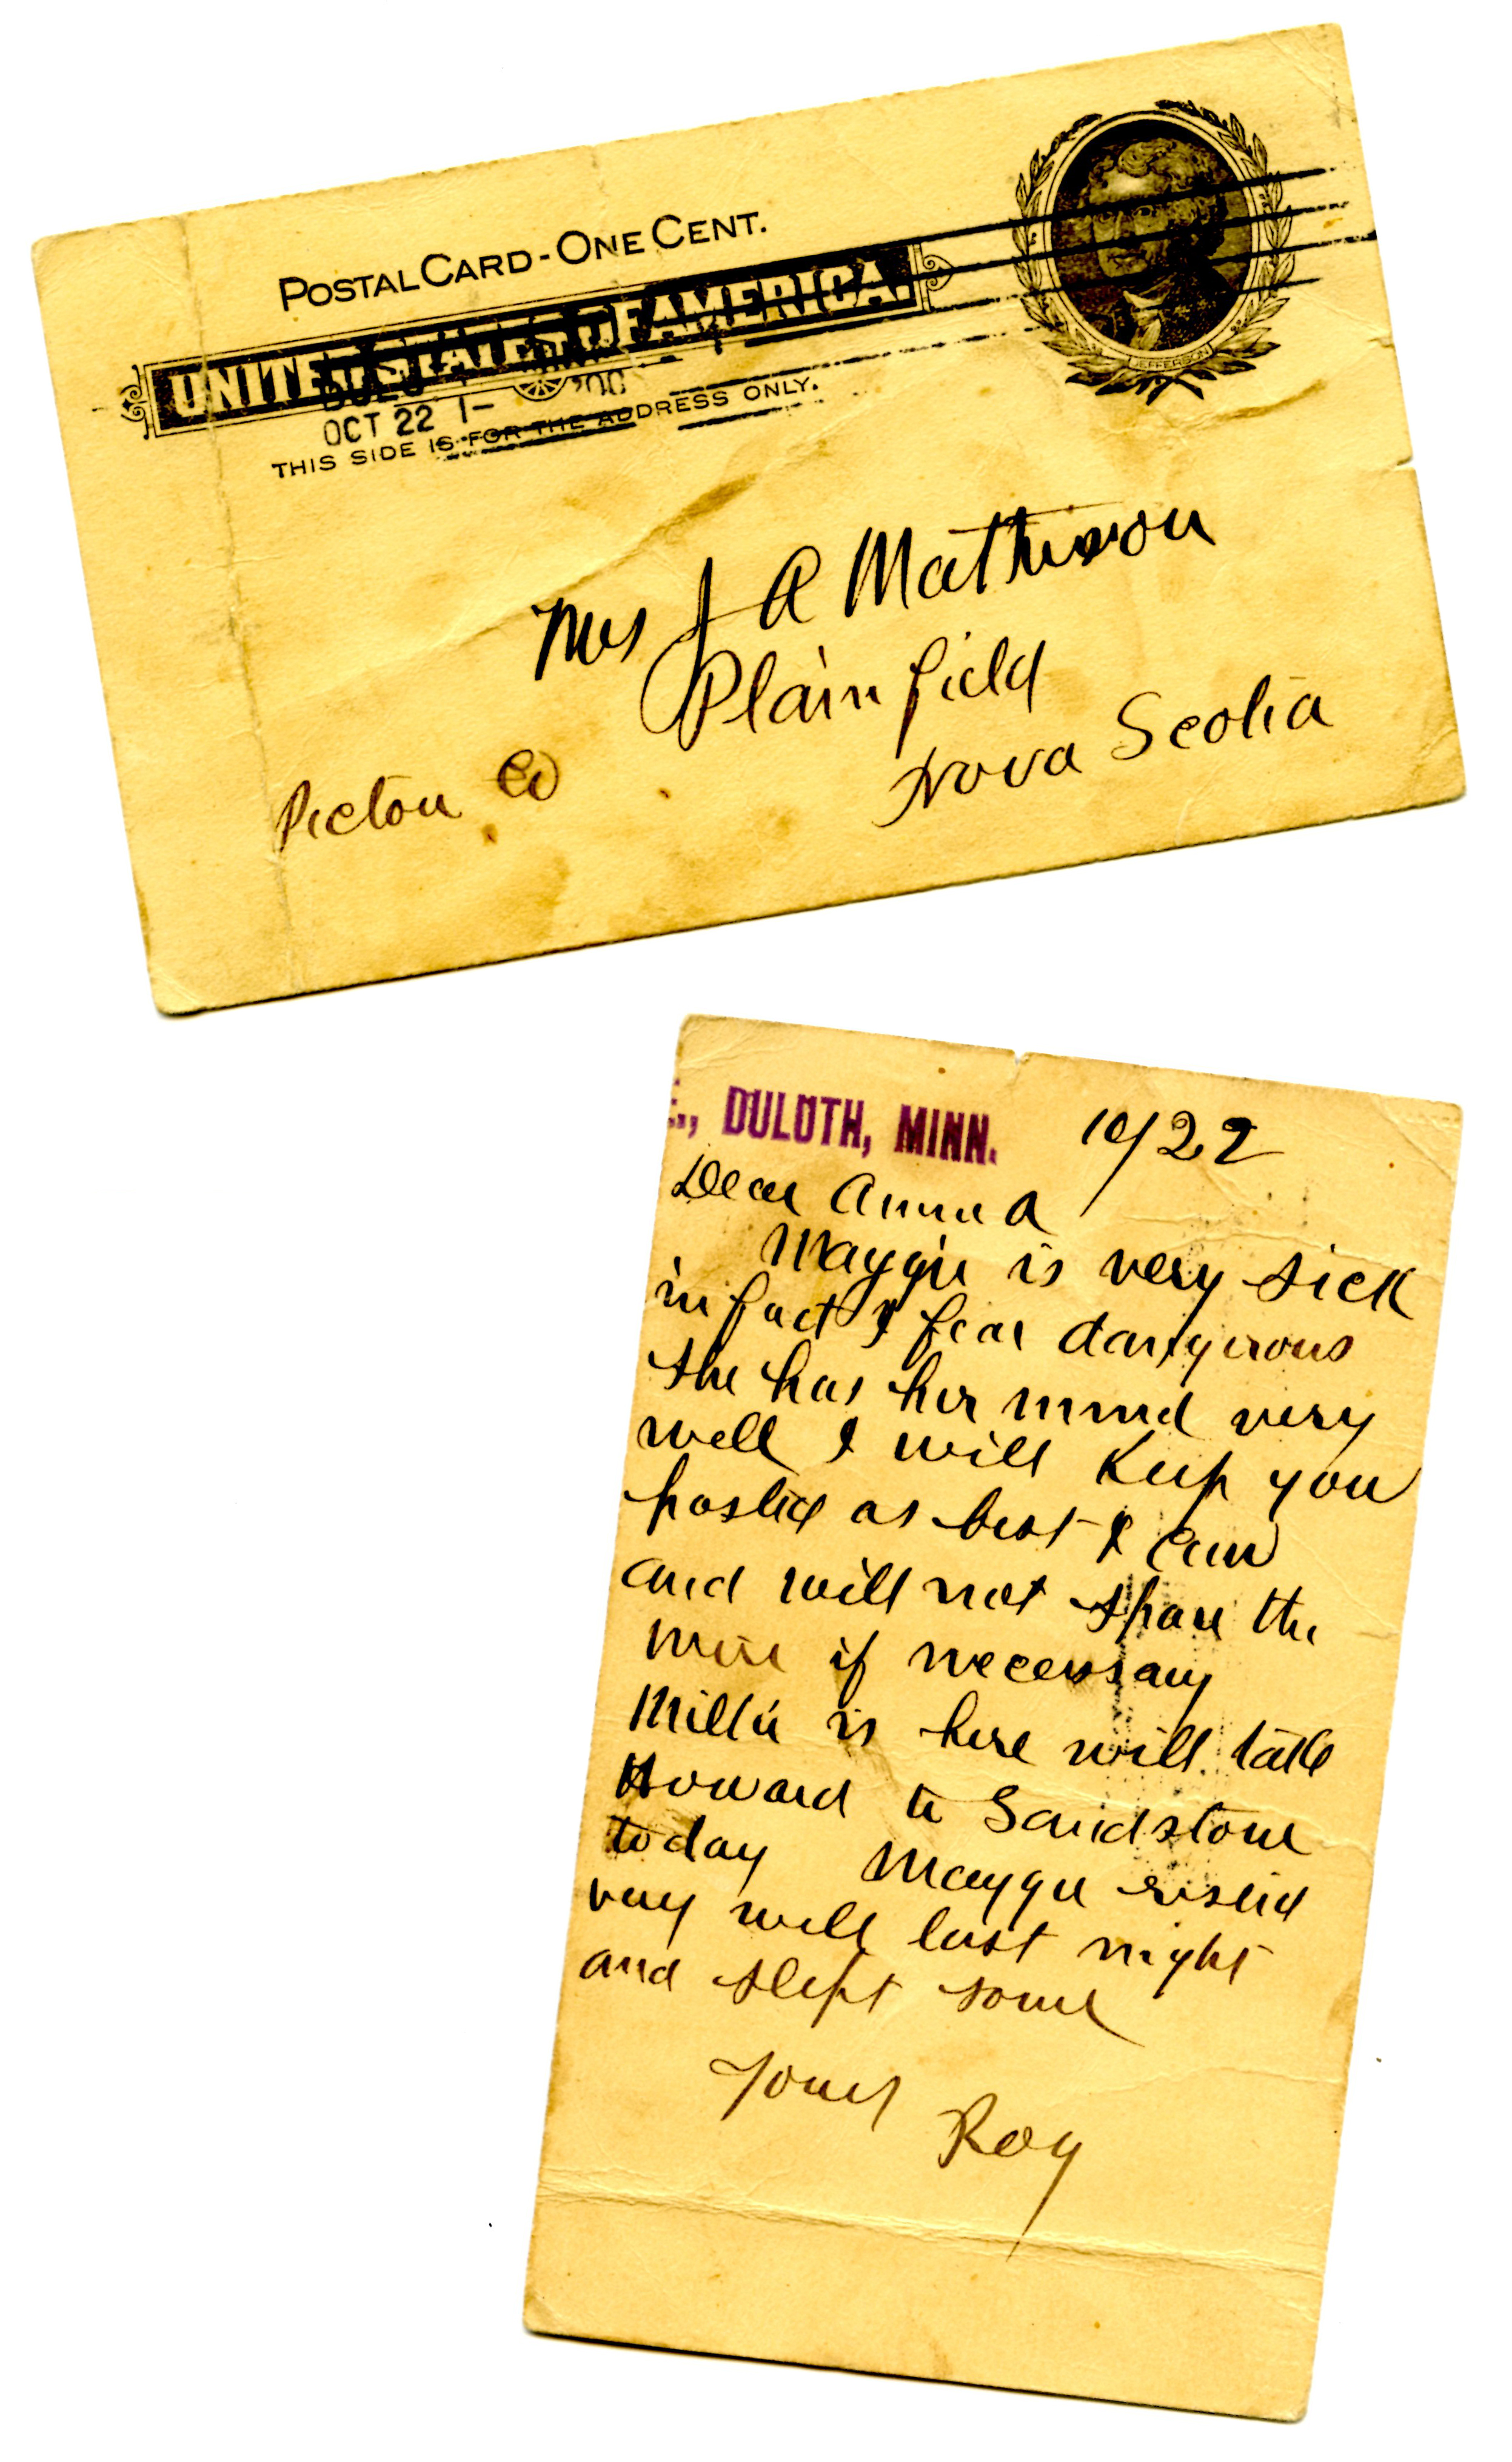 POSTAL CARD - ONE CENT.
UNITED STATES OF AMERICA.
OCT 22 1- '00
THIS SIDE IS FOR THE ADDRESS ONLY.
JEFFERSON
Mrs J A Mathison
Plainfield
Nova Scotia
Pictou Co
., DULUTH, MINN. 10/22
Dear Anna
Maggie is very sick
in fact I fear dangerous
she has her mind very
well I will Keep you
posted as best I can
and will not spare the
wire if necessary
Millie is here will take
Howard to Sandstone
today Maggie rested
very well last night
and slept some
Yours
Roy